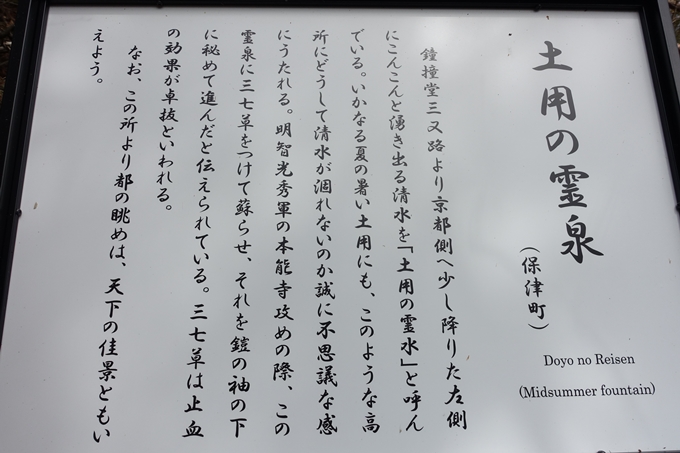 土用の霊泉
(保津町)
Doyo no Reisen
(Midsummer fountain)
鐘撞堂三又路より京都側へ少し降りた左側
にこんこんと湧き出る清水を「土用の霊水」と呼ん
でいる。いかなる夏の暑い土用にも、このような高
所にどうして清水が涸れないのか誠に不思議な感
にうたれる。明智光秀軍の本能寺攻めの際、この
霊泉に三七草をつけて蘇らせ、それを鎧の袖の下
に秘めて進んだと伝えられている。三七草は止血
の効果が卓抜といわれる。
なお、この所より都の眺めは、天下の佳景ともい
えよう。